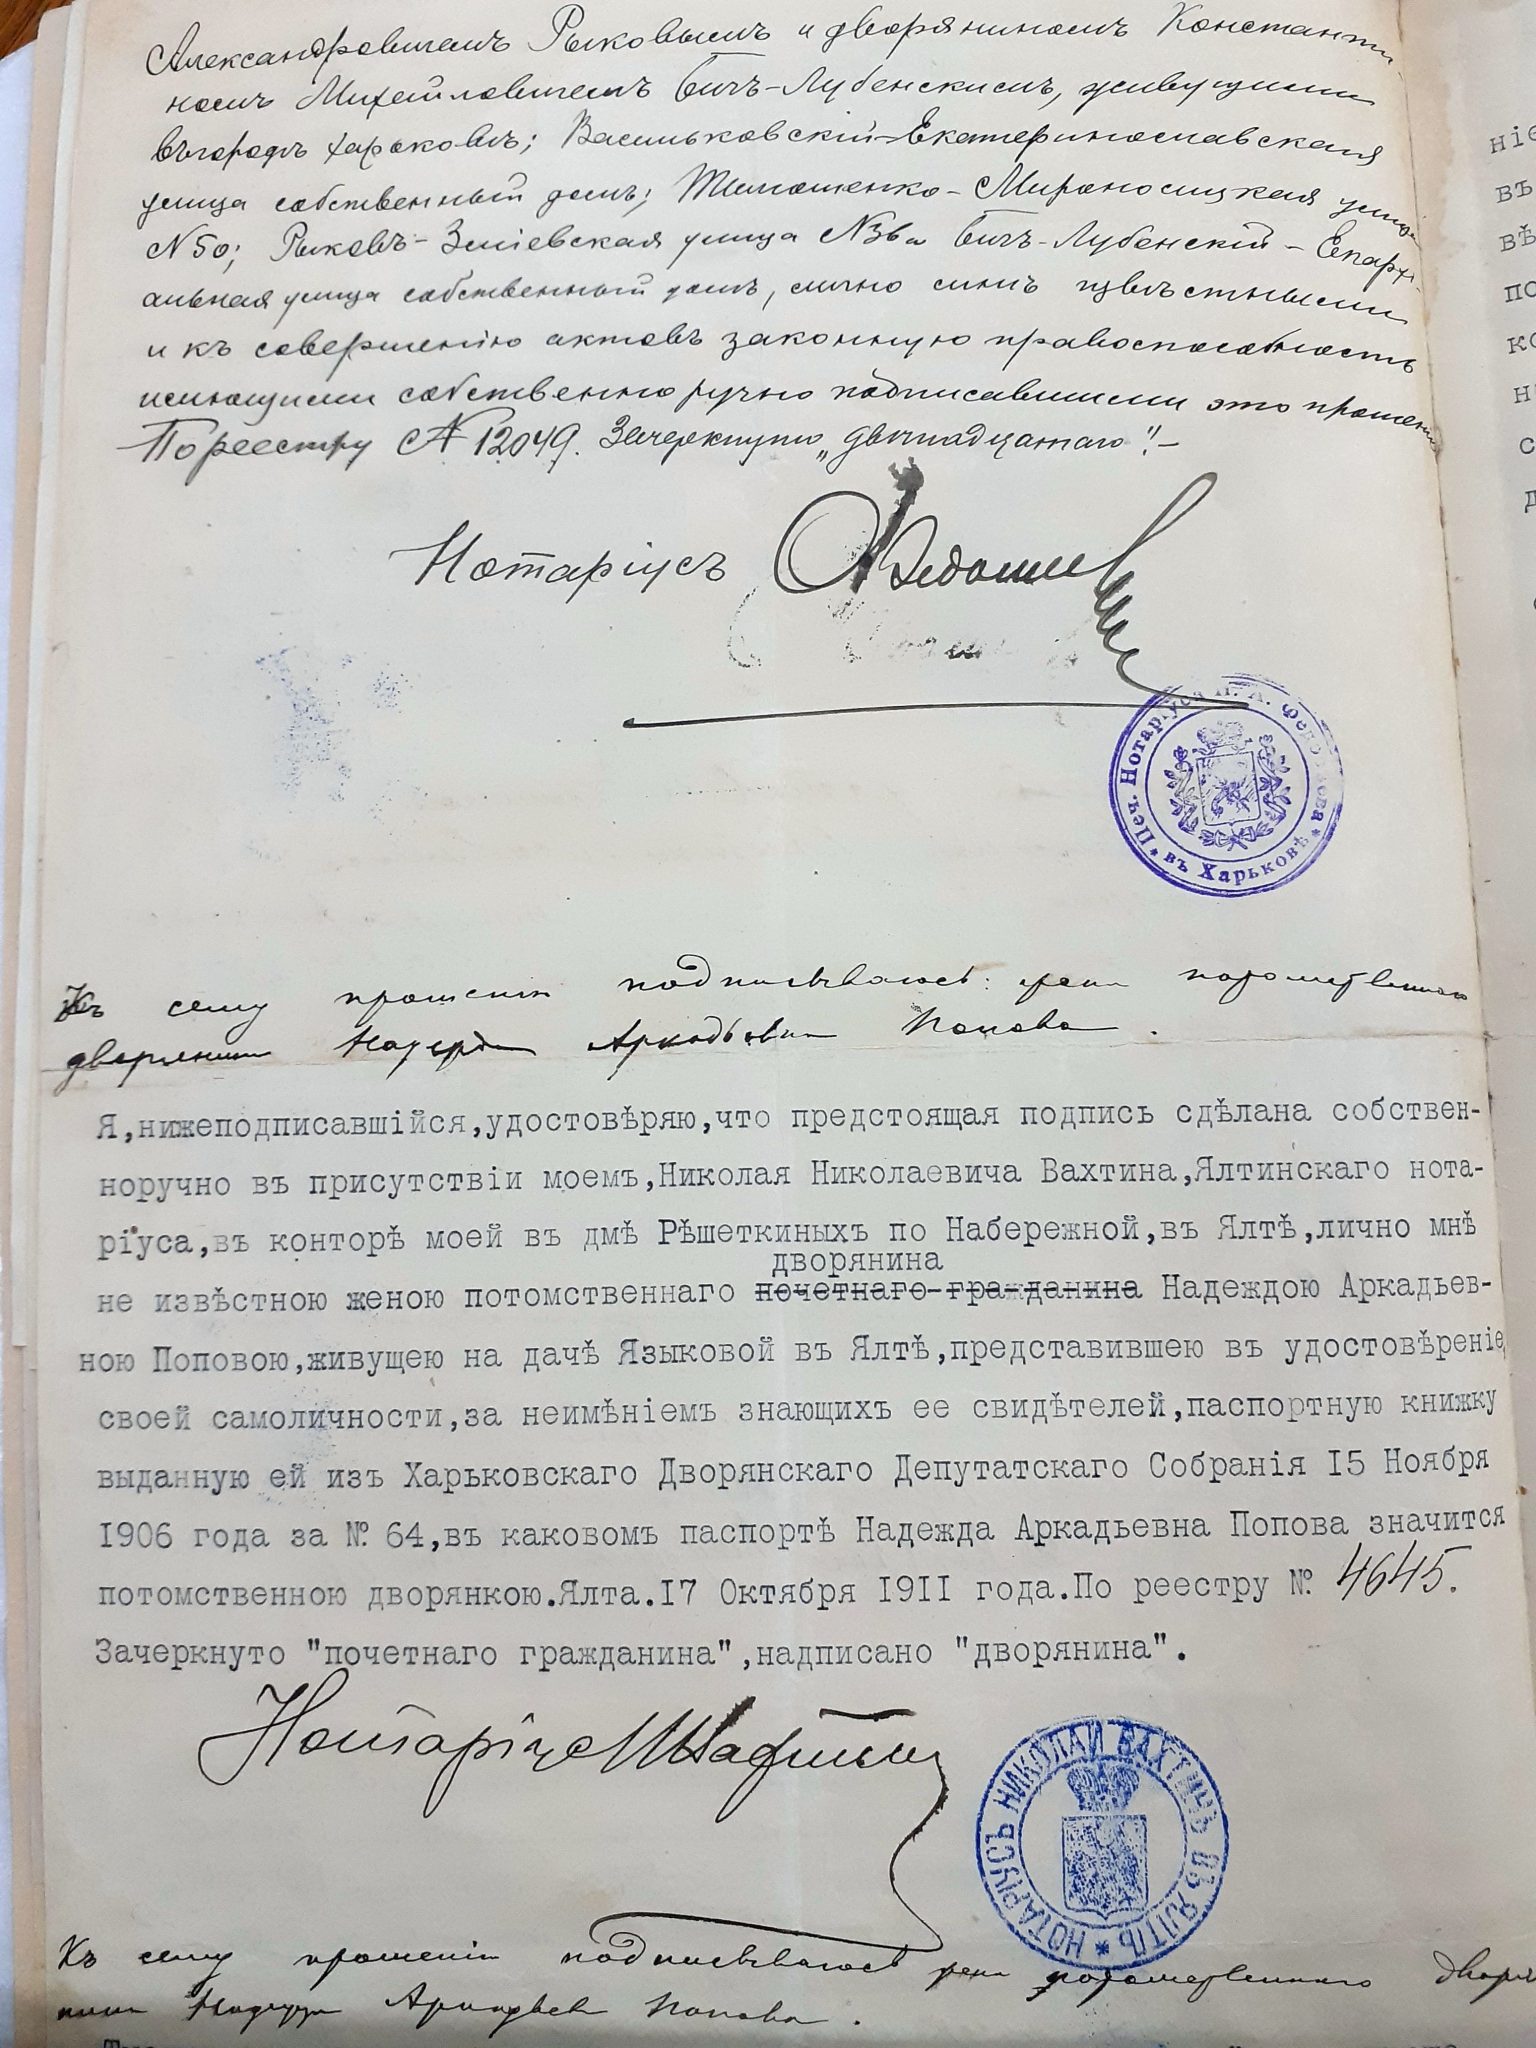 Александровичемъ Рыковымъ и дворяниномъ Константи-
номъ Михайловичемъ Бичъ-Лубенскимъ, живущими
въ городѣ Харьковѣ; Васильковскій-Екатеринославская
улица собственный домъ; Тимошенко-Мироносицкая улица
N 50; Рыковъ-Зміевская улица N 36 и Бичъ-Лубенскій-Епархі-
альная улица собственный домъ, лично мнѣ извѣстными
и къ совершенію актовъ законную правоспособность
имѣющими собственноручно подписавшими это прошеніе
По реестру № 12049. Зачеркнуто „двѣнадцатаго"!-
Нотаріусъ
Печ. Нотаріуса * въ Харьковѣ *
Къ сему прошенію подписываюсь: жена потомственнаго
дворянина Надежда Аркадьевна Попова.
Я,нижеподписавшійся,удостовѣряю,что предстоящая подпись сдѣлана собствен-
норучно въ присутствіи моемъ,Николая Николаевича Вахтина,Ялтинскаго нота-
ріуса,въ конторѣ моей въ дмѣ Рѣшеткиныхъ по Набережной,въ Ялтѣ,лично мнѣ
дворянина
не извѣстною женою потомственнаго почетнаго гражданина Надеждою Аркадьев-
ною Поповою,живущею на дачѣ Языковой въ Ялтѣ,представившею въ удостовѣреніе
своей самоличности,за неимѣніемъ знающихъ ее свидѣтелей,паспортную книжку
выданную ей изъ Харьковскаго Дворянскаго Депутатскаго Собранія 15 Ноября
1906 года за № 64,въ каковомъ паспортѣ Надежда Аркадьевна Попова значится
потомственною дворянкою.Ялта.17 Октября 1911 года.По реестру № 4645.
Зачеркнуто "почетнаго гражданина",надписано "дворянина".
Нотаріусъ Вахтинъ
НОТАРІУСЪ НИКОЛАЙ ВАХТИНЪ ВЪ ЯЛТѢ *
Къ сему прошенію подписываюсь жена потомственнаго дворя-
нина Надежда Аркадьев Попова.